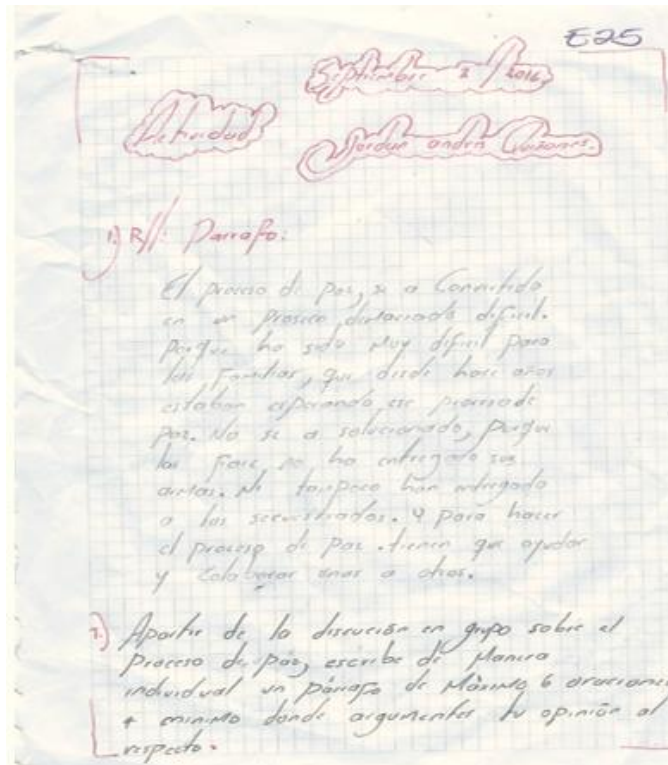 E25
Septiembre 2/2016
Actividad
Jordan andres Quiñones.
1) R//: Parrafo:
El proceso de paz, se a Convertido
en un proseso demaciado dificil.
Porque ha sido Muy dificil para
las Familias, que desde hace años
estaban esperando ese proceso de
paz. No se a solucionado, porque
las farc, no ha entregado sus
armas. Ni tampoco han entregado
a los secuestrados. Y para hacer
el proceso de paz. tienen que ayudar
y colaborar unos a otros.
1) Apartir de la discución en grupo sobre el
Proceso de páz, escribe de Manera
individual un párrafo de Máximo 6 oraciones
4 minimo donde argumentes tu opinión al
respecto.